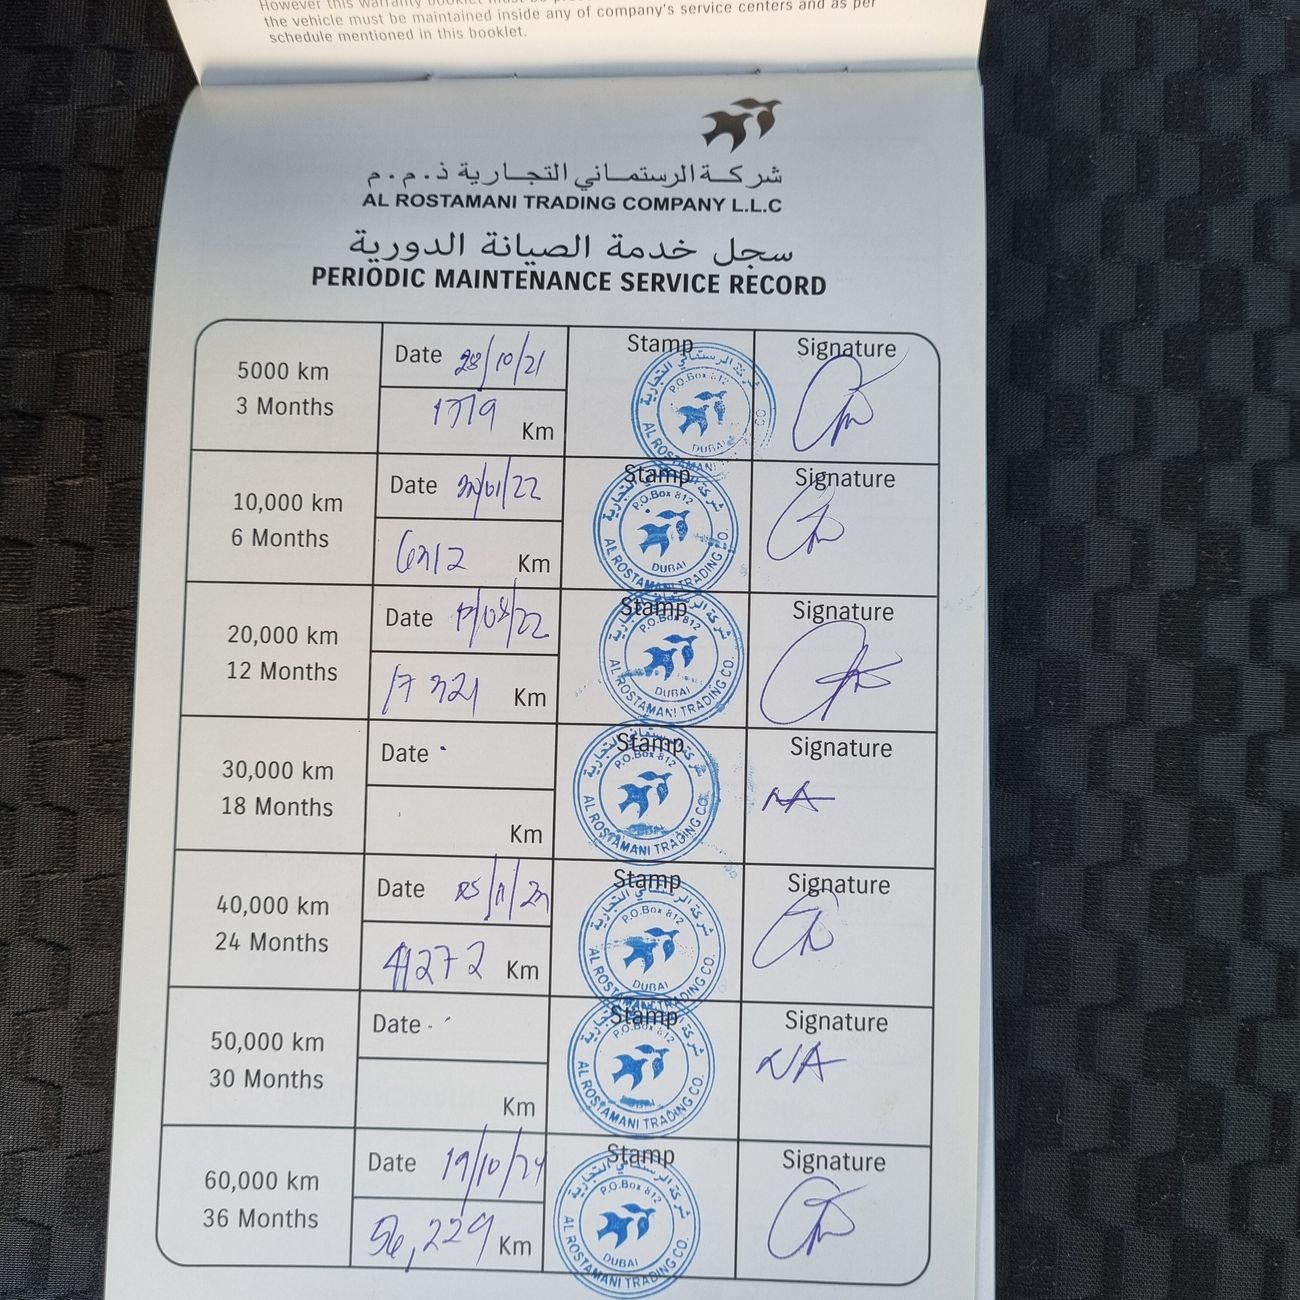 the vehicle must be maintained inside any of company's service centers and as per
schedule mentioned in this booklet.
شركة الرستماني التجارية ذ.م.م
AL ROSTAMANI TRADING COMPANY L.L.C
سجل خدمة الصيانة الدورية
PERIODIC MAINTENANCE SERVICE RECORD
5000 km
3 Months
Date 28/10/21
Km
Stamp
شركة الرستماني التجارية
P.O.Box 812
DUBAI
AL ROSTAMANI CO
Signature
10,000 km
6 Months
Date /01/22
Km
Stamp
P.O.Box 812
DUBAI
AL ROSTAMANI TRADING CO.
Signature
20,000 km
12 Months
Date /22
17321 Km
Stamp
P.O.Box 812
DUBAI
AL ROSTAMANI TRADING CO.
Signature
30,000 km
18 Months
Date
Km
Stamp
P.O.Box 812
AL ROSTAMANI TRADING CO.
Signature
NA
40,000 km
24 Months
Date
41272 Km
Stamp
P.O.Box 812
DUBAI
AL ROSTAMANI TRADING CO.
Signature
50,000 km
30 Months
Date
Km
Stamp
P.O.Box 812
AL ROSTAMANI TRADING CO.
Signature
NA
60,000 km
36 Months
Date 19/10/24
56,229 Km
Stamp
P.O.Box 812
DUBAI
AL ROSTAMANI TRADING CO.
Signature